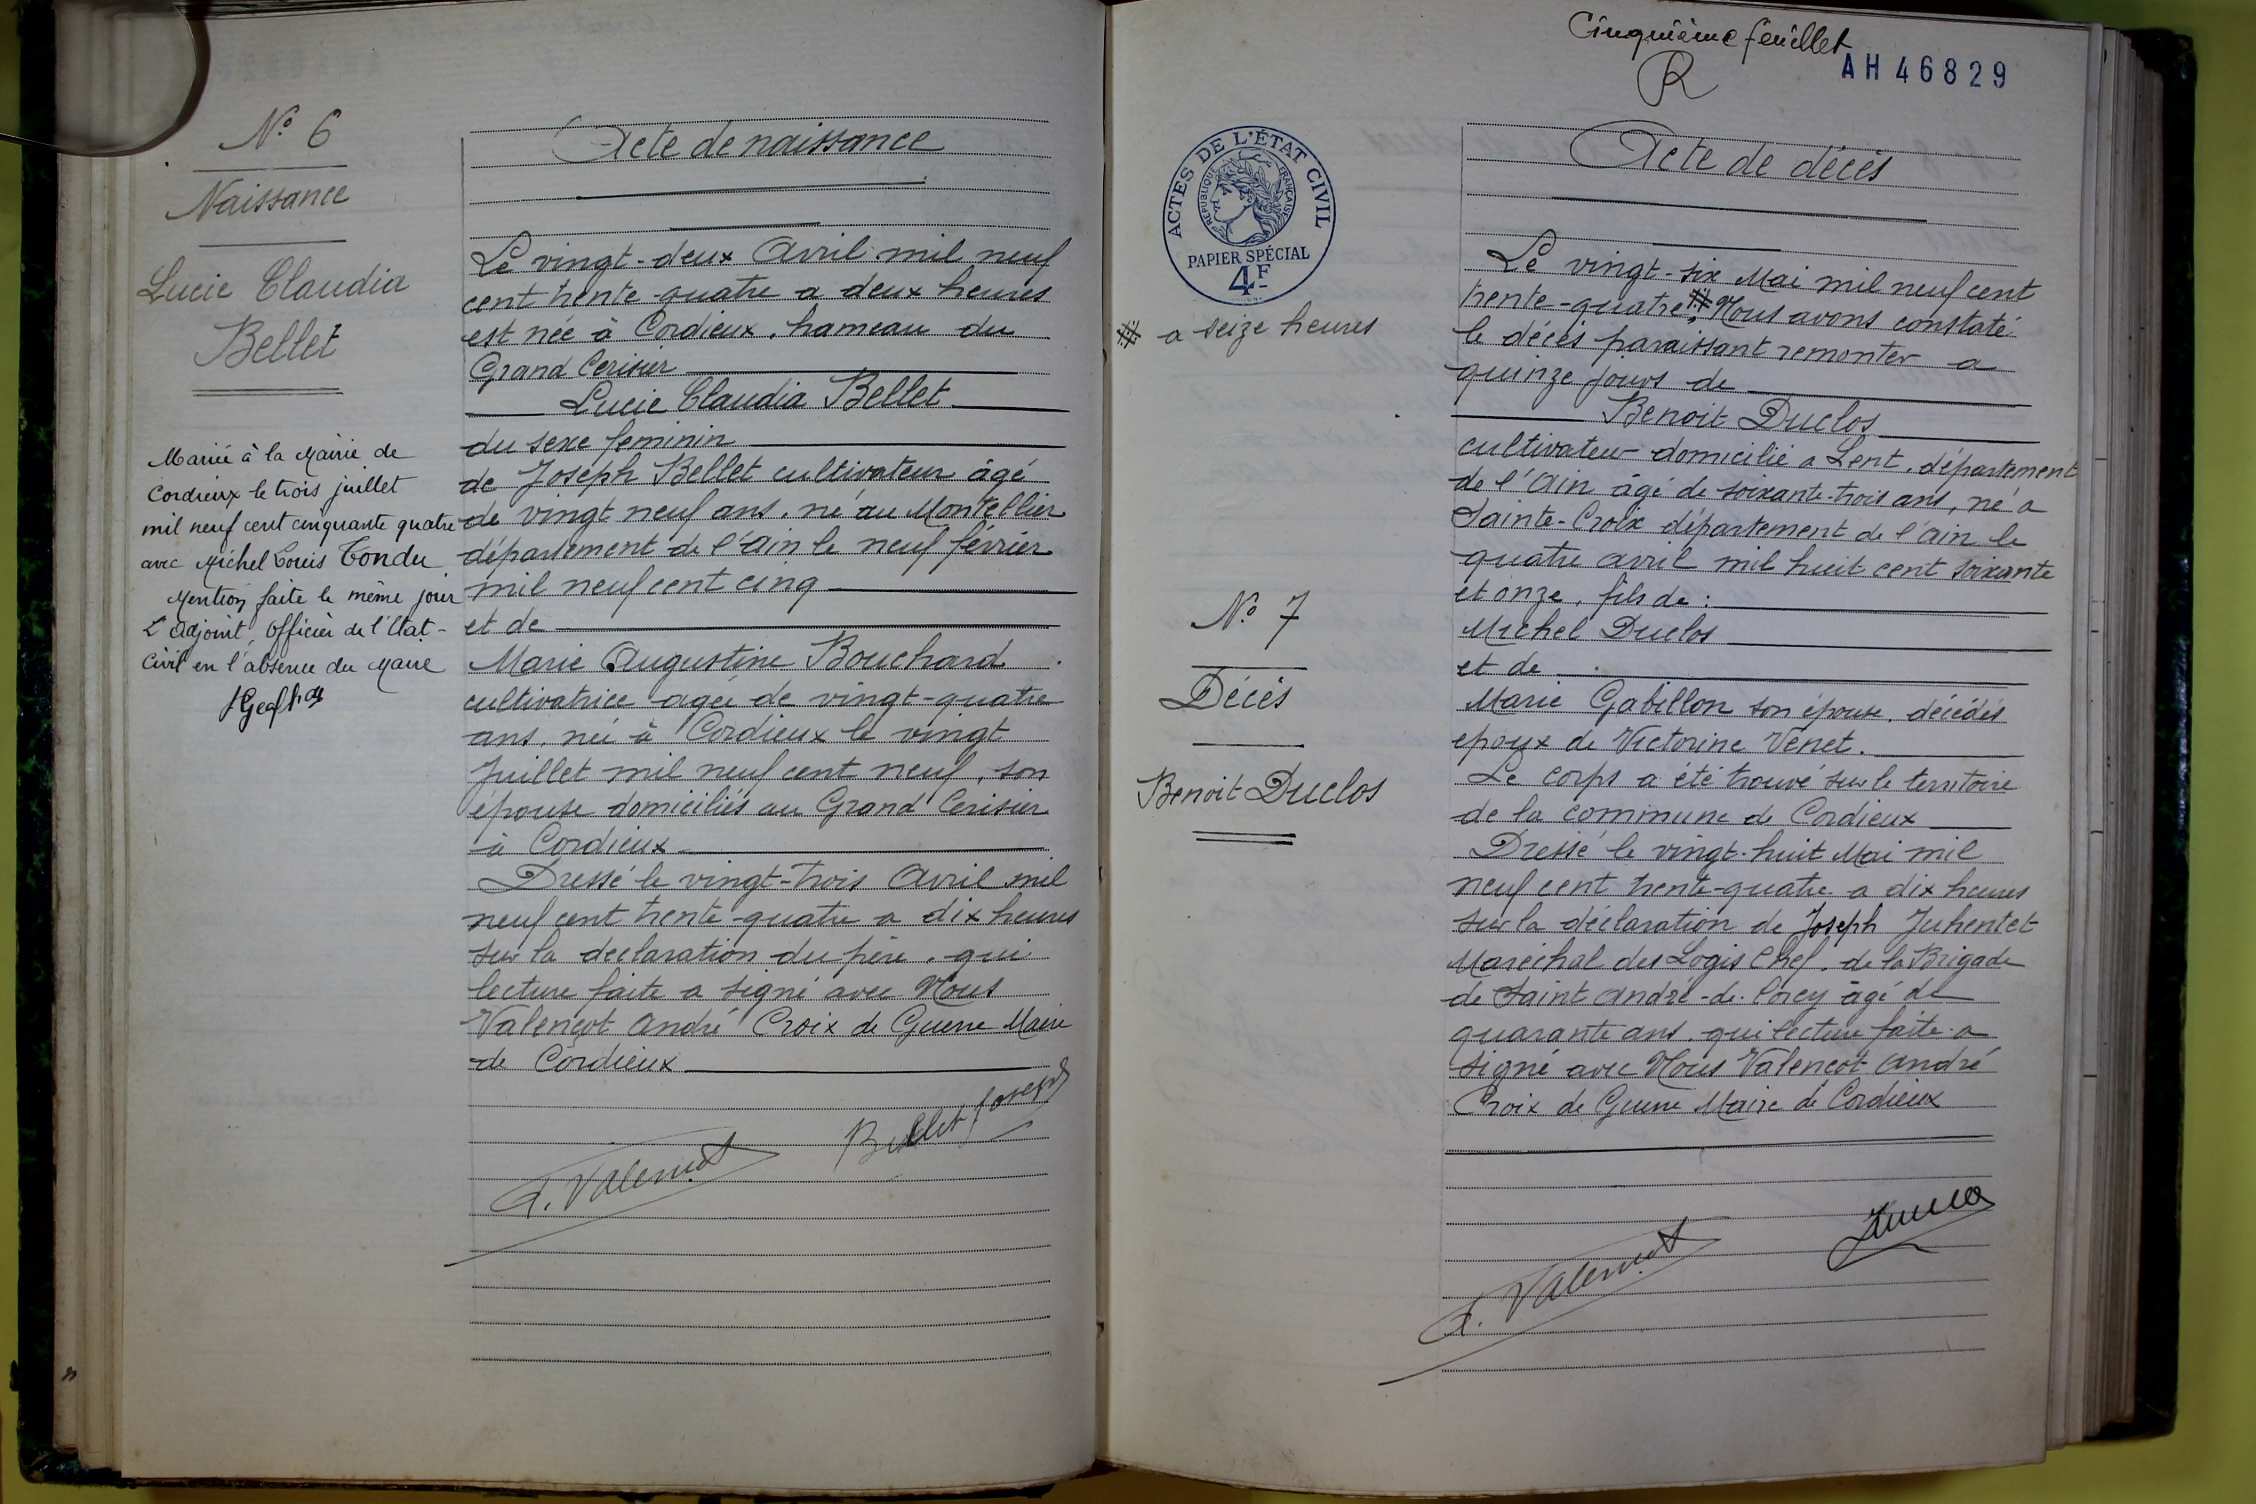 N° 6
Naissance
Lucie Claudia
Bellet
Mariée à la Mairie de
Cordieux le trois juillet
mil neuf cent cinquante quatre
avec Michel Louis Tondu
Mention faite le même jour
L'Adjoint, Officier de l'Etat-
Civil en l'absence du Maire
Acte de naissance
Le vingt-deux Avril mil neuf
cent trente-quatre a deux heures
est née à Cordieux, hameau du
Grand Cerisier
Lucie Claudia Bellet
du sexe feminin
de Joseph Bellet cultivateur âgé
de vingt neuf ans, né au Montellier
département de l'Ain le neuf février
mil neuf cent cinq
et de
Marie Augustine Bouchard
cultivatrice agée de vingt-quatre
ans, née à Cordieux le vingt
Juillet mil neuf cent neuf, son
épouse domiciliés au Grand Cerisier
à Cordieux
Dressé le vingt-trois Avril mil
neuf cent trente-quatre a dix heures
sur la declaration du père, qui
lecture faite a signé avec Nous
Valençot André Croix de Guerre Maire
de Cordieux
Bellet Joseph
A. Valençot
Cinquième feuillet
R
AH 46829
ACTES DE L'ÉTAT CIVIL
RÉPUBLIQUE FRANÇAISE
PAPIER SPÉCIAL
4F
a seize heures
N° 7
Décès
Benoit Duclos
Acte de décès
Le vingt-six Mai mil neuf cent
trente-quatre, Nous avons constaté
le décès paraissant remonter a
quinze jours de
Benoit Duclos
cultivateur domicilié a Lent, département
de l'Ain âgé de soixante-trois ans, né a
Sainte-Croix département de l'Ain le
quatre avril mil huit cent soixante
et onze, fils de :
Michel Duclos
et de
Marie Gabillon son épouse, décédés
epoux de Victorine Venet.
Le corps a été trouvé sur le territoire
de la commune de Cordieux
Dressé le vingt-huit Mai mil
neuf cent trente-quatre a dix heures
sur la déclaration de Joseph Juhentet
Maréchal des Logis Chef, de la Brigade
de Saint André-de-Corcy âgé de
quarante ans, qui lecture faite a
signé avec Nous Valençot André
Croix de Guerre Maire de Cordieux
A. Valençot